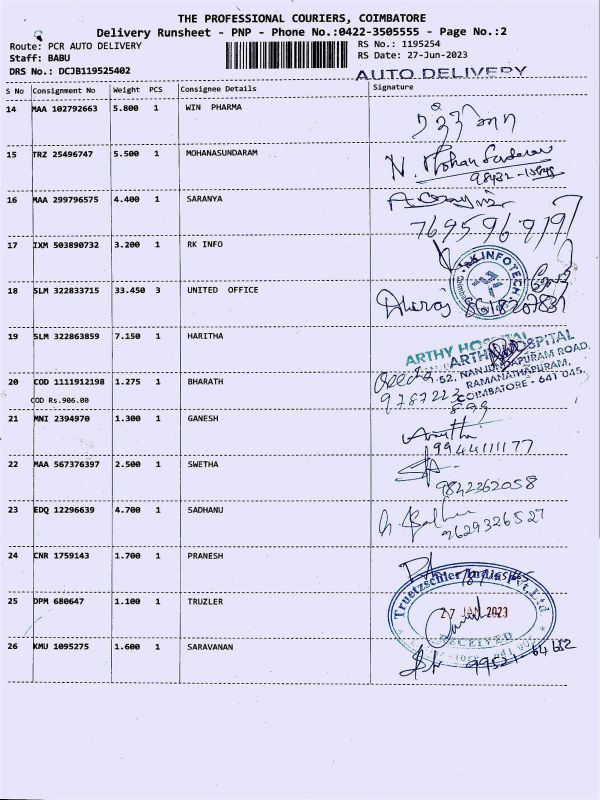 THE PROFESSIONAL COURIERS, COIMBATORE
Delivery Runsheet - PNP - Phone No.:0422-3505555 - Page No.:2
Route: PCR AUTO DELIVERY
RS No.: 1195254
Staff: BABU
RS Date: 27-Jun-2023
DRS No.: DCJB119525402
AUTO DELIVERY
S No Consignment No Weight PCS Consignee Details Signature
14 MAA 102792663 5.800 1 WIN PHARMA
15 TRZ 25496747 5.500 1 MOHANASUNDARAM N. Mohan Sundaram
98432-
16 MAA 299796575 4.400 1 SARANYA
17 IXM 503890732 3.200 1 RK INFO
INFOTECH
18 SLM 322833715 33.450 3 UNITED OFFICE Dheraj
19 SLM 322863859 7.150 1 HARITHA
ARTHY HOSPITAL
ARTHY HOSPITAL
52, NANJUNDAPURAM ROAD,
RAMANATHAPURAM,
COIMBATORE - 641 045.
20 COD 1111912198 1.275 1 BHARATH
COD Rs.906.00
9787223
899
21 MNI 2394970 1.300 1 GANESH
9944111177
22 MAA 567376397 2.500 1 SWETHA
9842362058
23 EDQ 12296639 4.700 1 SADHANU
9629326527
24 CNR 1759143 1.700 1 PRANESH
25 DPM 680647 1.100 1 TRUZLER
Truetzschler India Pvt. Ltd
27 JAN 2023
RECEIVED
26 KMU 1095275 1.600 1 SARAVANAN